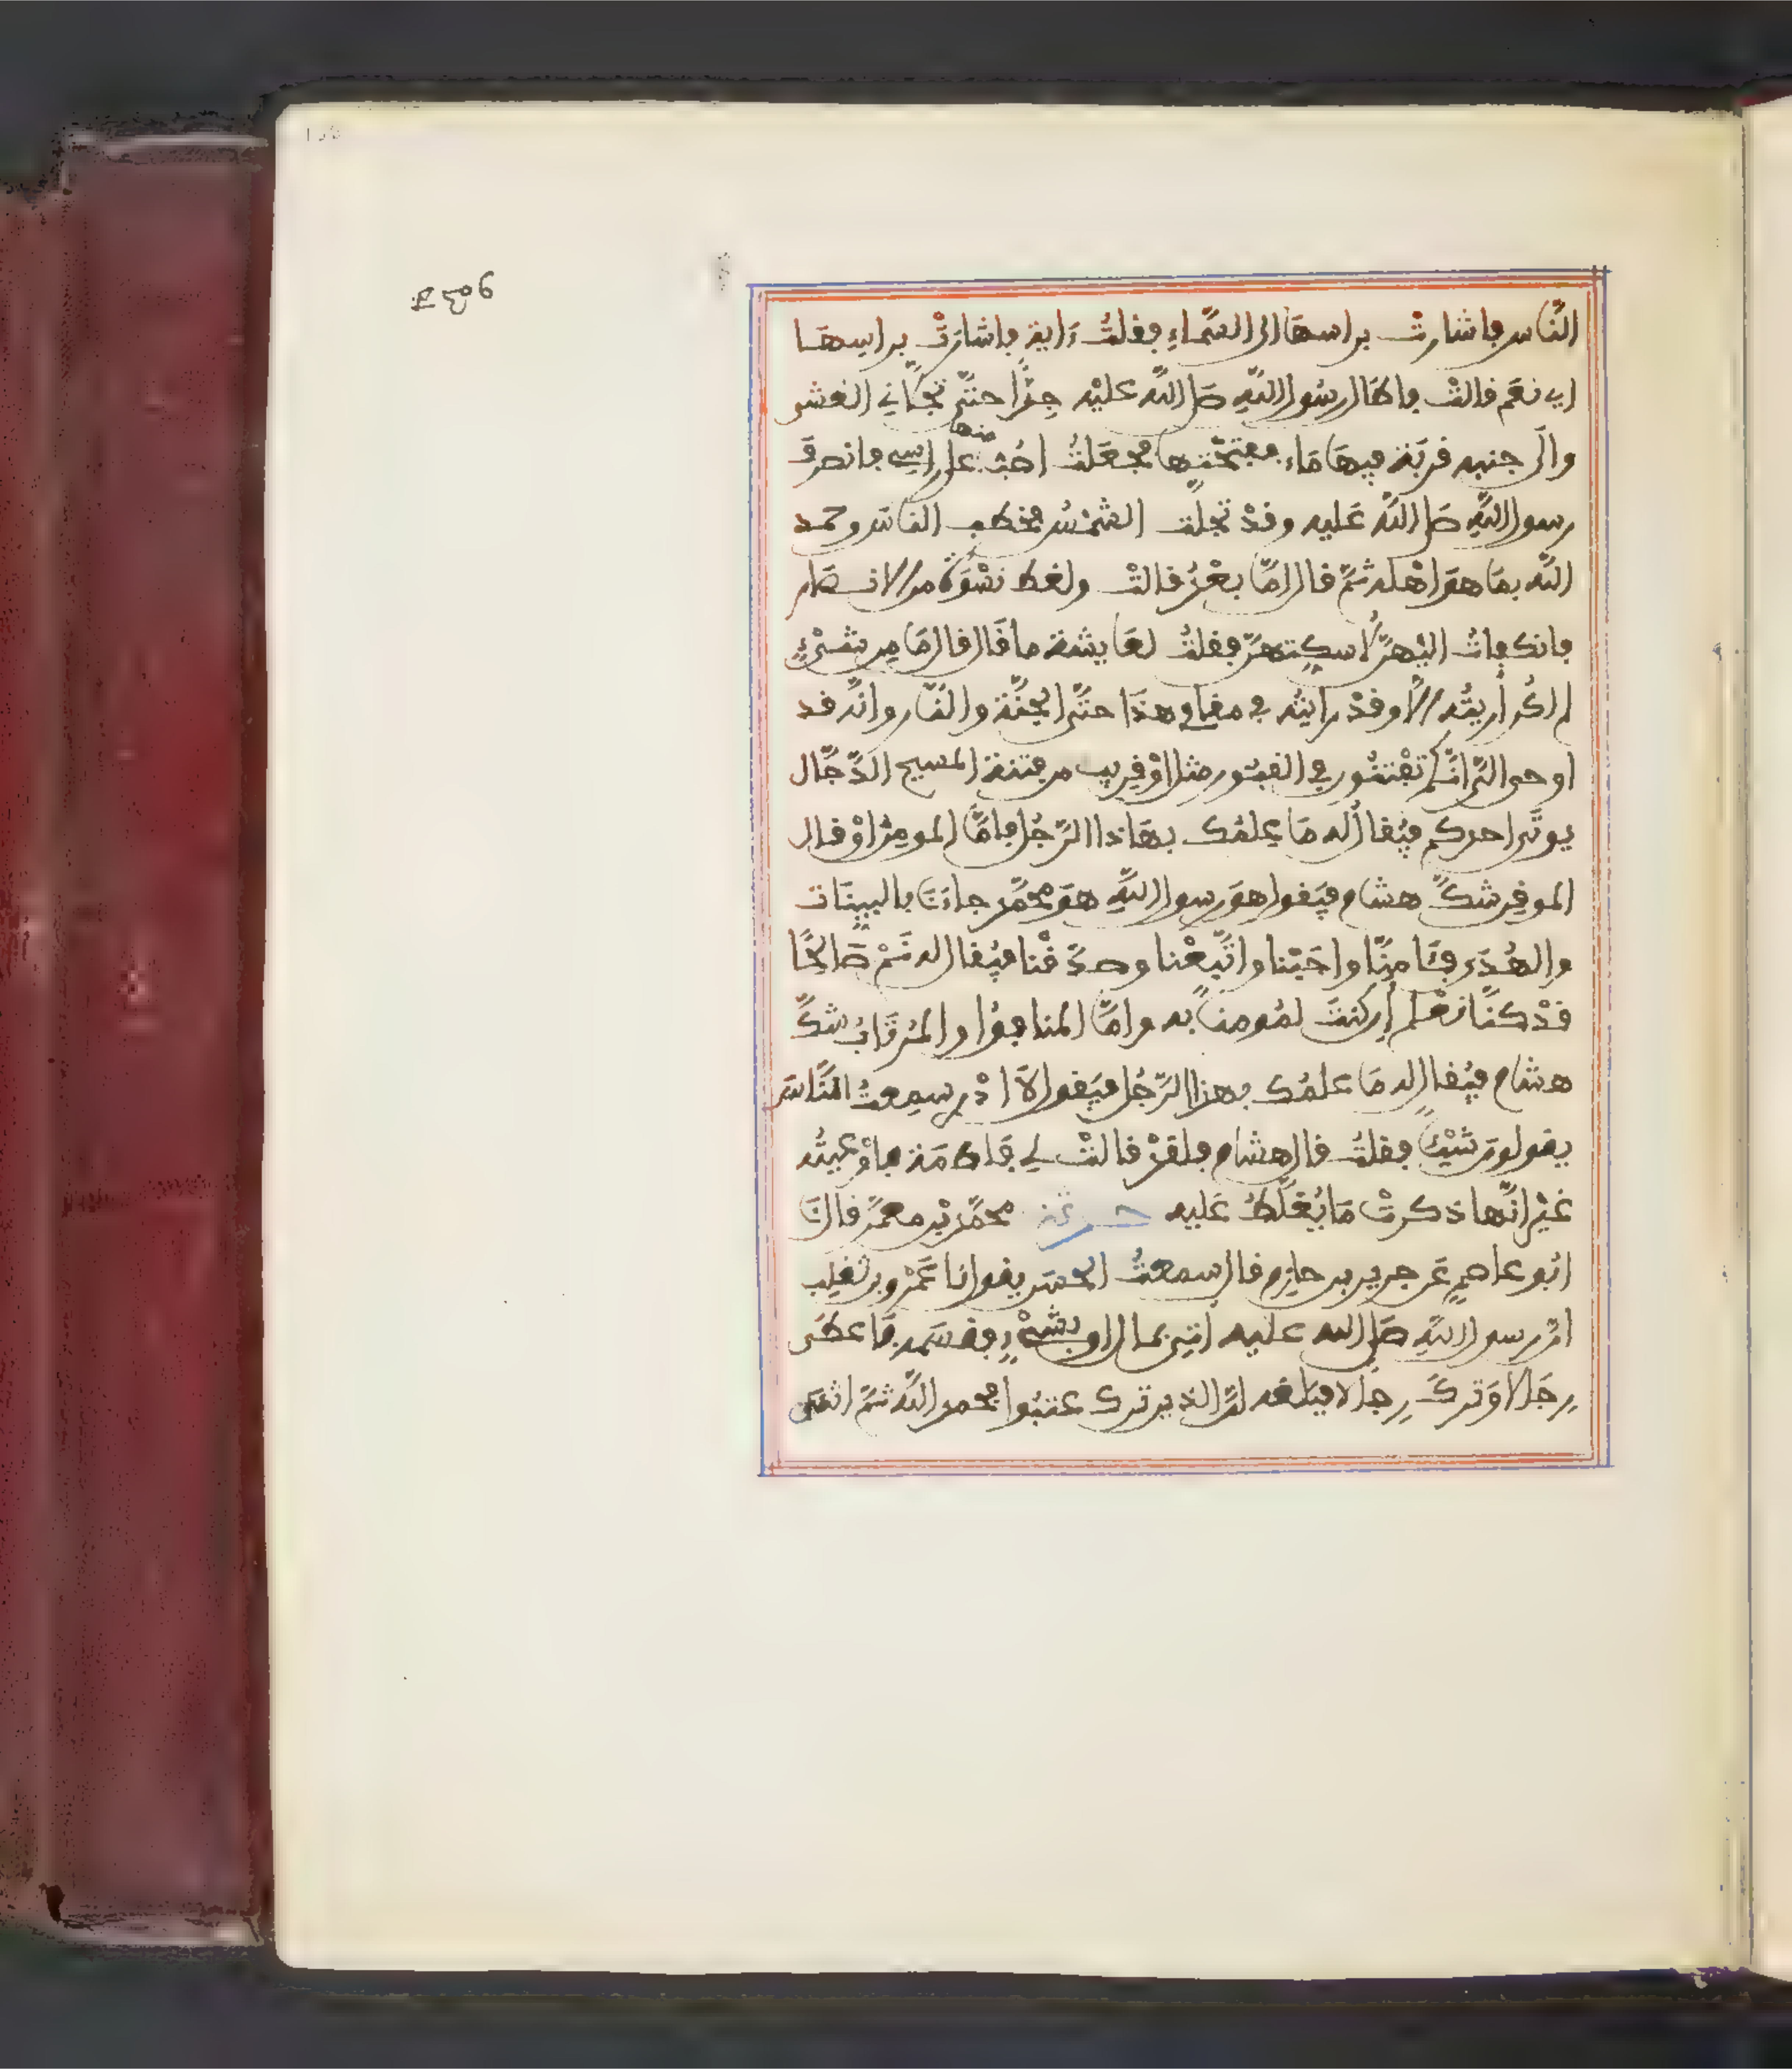 النَّاس فاشارتْ براسها الى السَّماءِ فقلتُ ءَاية فاشارَتْ براسِهَا
اي نعَم قالتْ فاطال رسُول اللَّهِ صَلى اللَّه عليْه جِدًّا حتَّى تجلَّاني الغشي
والَى جنبي قربَة فيهَا مَاء ففتحْتها فجعَلتُ اصُبّ منها على راسِي فانصرفَ
رسول اللَّهِ صَلى اللَّه عَليه وقدْ تجلَّت الشمْسُ فخطب الناسَ وحمد
اللَّه بمَا هوَ اهْله ثمَّ قال امَّا بعْدُ قالتْ ولغط نسْوَةٌ من الانصَار
فانكفاتُ اليْهنَّ لاسكِّتهنَّ فقلتُ لعَايشة ما قَال قال مَا مِن شيْءٍ
لم اكُن أريتُه الَّا وقدْ رايتُه في مقامي هذَا حتَّى الجنَّة والنَّار وانَّه قد
اوحى اليَّ انَّكم تفْتنُون في القبُور مثل اوْ قريب من فتنة المسيح الدَّجَّال
يوتَى احدكم فيُقالُ له مَا عِلمُك بهَاذا الرَّجُل فامَّا المومِنُ اوْ قال
الموقِن شكَّ هشام فيَقول هوَ رسول اللَّهِ هوَ محمَّد جاءَنَا بالبينَات
والهُدَى فئَامنَّا واجَبْنا واتَّبعْنا وصدَّقْنا فيُقال له نَمْ صَالحًا
قدْ كنَّا نعْلم إن كنتَ لمُومنًا به وامَّا المنافقُ او المُرتَابُ شكَّ
هشام فيُقال له مَا علمُك بهذا الرَّجُل فيَقول لَا ادْرِي سمِعتُ النَّاسَ
يقولونَ شيْئًا فقلتُ قال هشام فلقدْ قالتْ لي فَاطمَة فاوْعيتُه
غيْر انَّها ذكرتْ مَا يُغلَّظُ عَليه حدثنا محمَّد بْن معمَّر قال نَا
ابُو عاصِمٍ عَن جرير بن حازِم قال سمعتُ الحسَن يقول نا عَمْرو بن تغلِب
انَّ رسول اللَّهِ صَلى الله عليه اُتِيَ بمال او بشيْءٍ فقسَمه فَاعطَى
رِجَالا وَتركَ رِجَالا فبَلغه انَّ الذين ترك عتبُوا فحمد اللَّه ثمَّ اثنَى